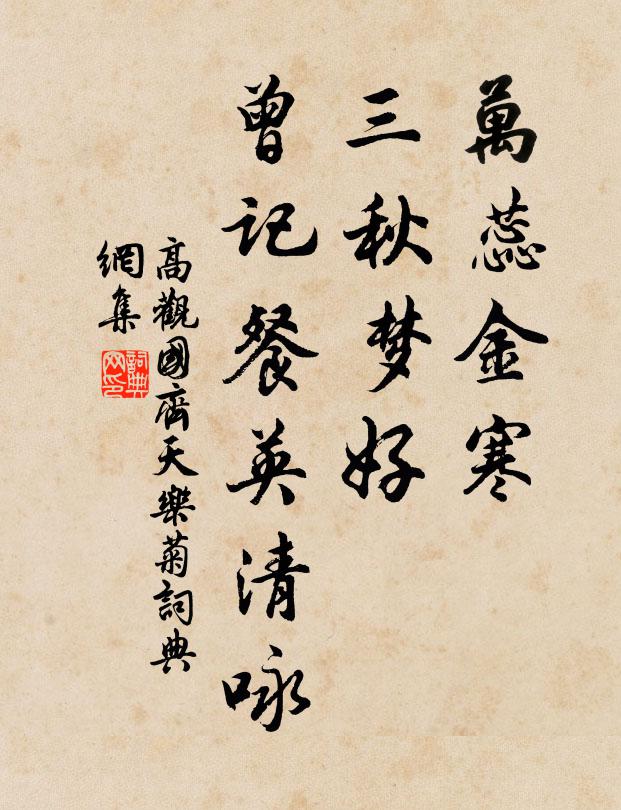 萬蕊金寒
三秋梦好
曾记餐英清咏
高觀國齊天樂菊詞典
網集
詞典网印